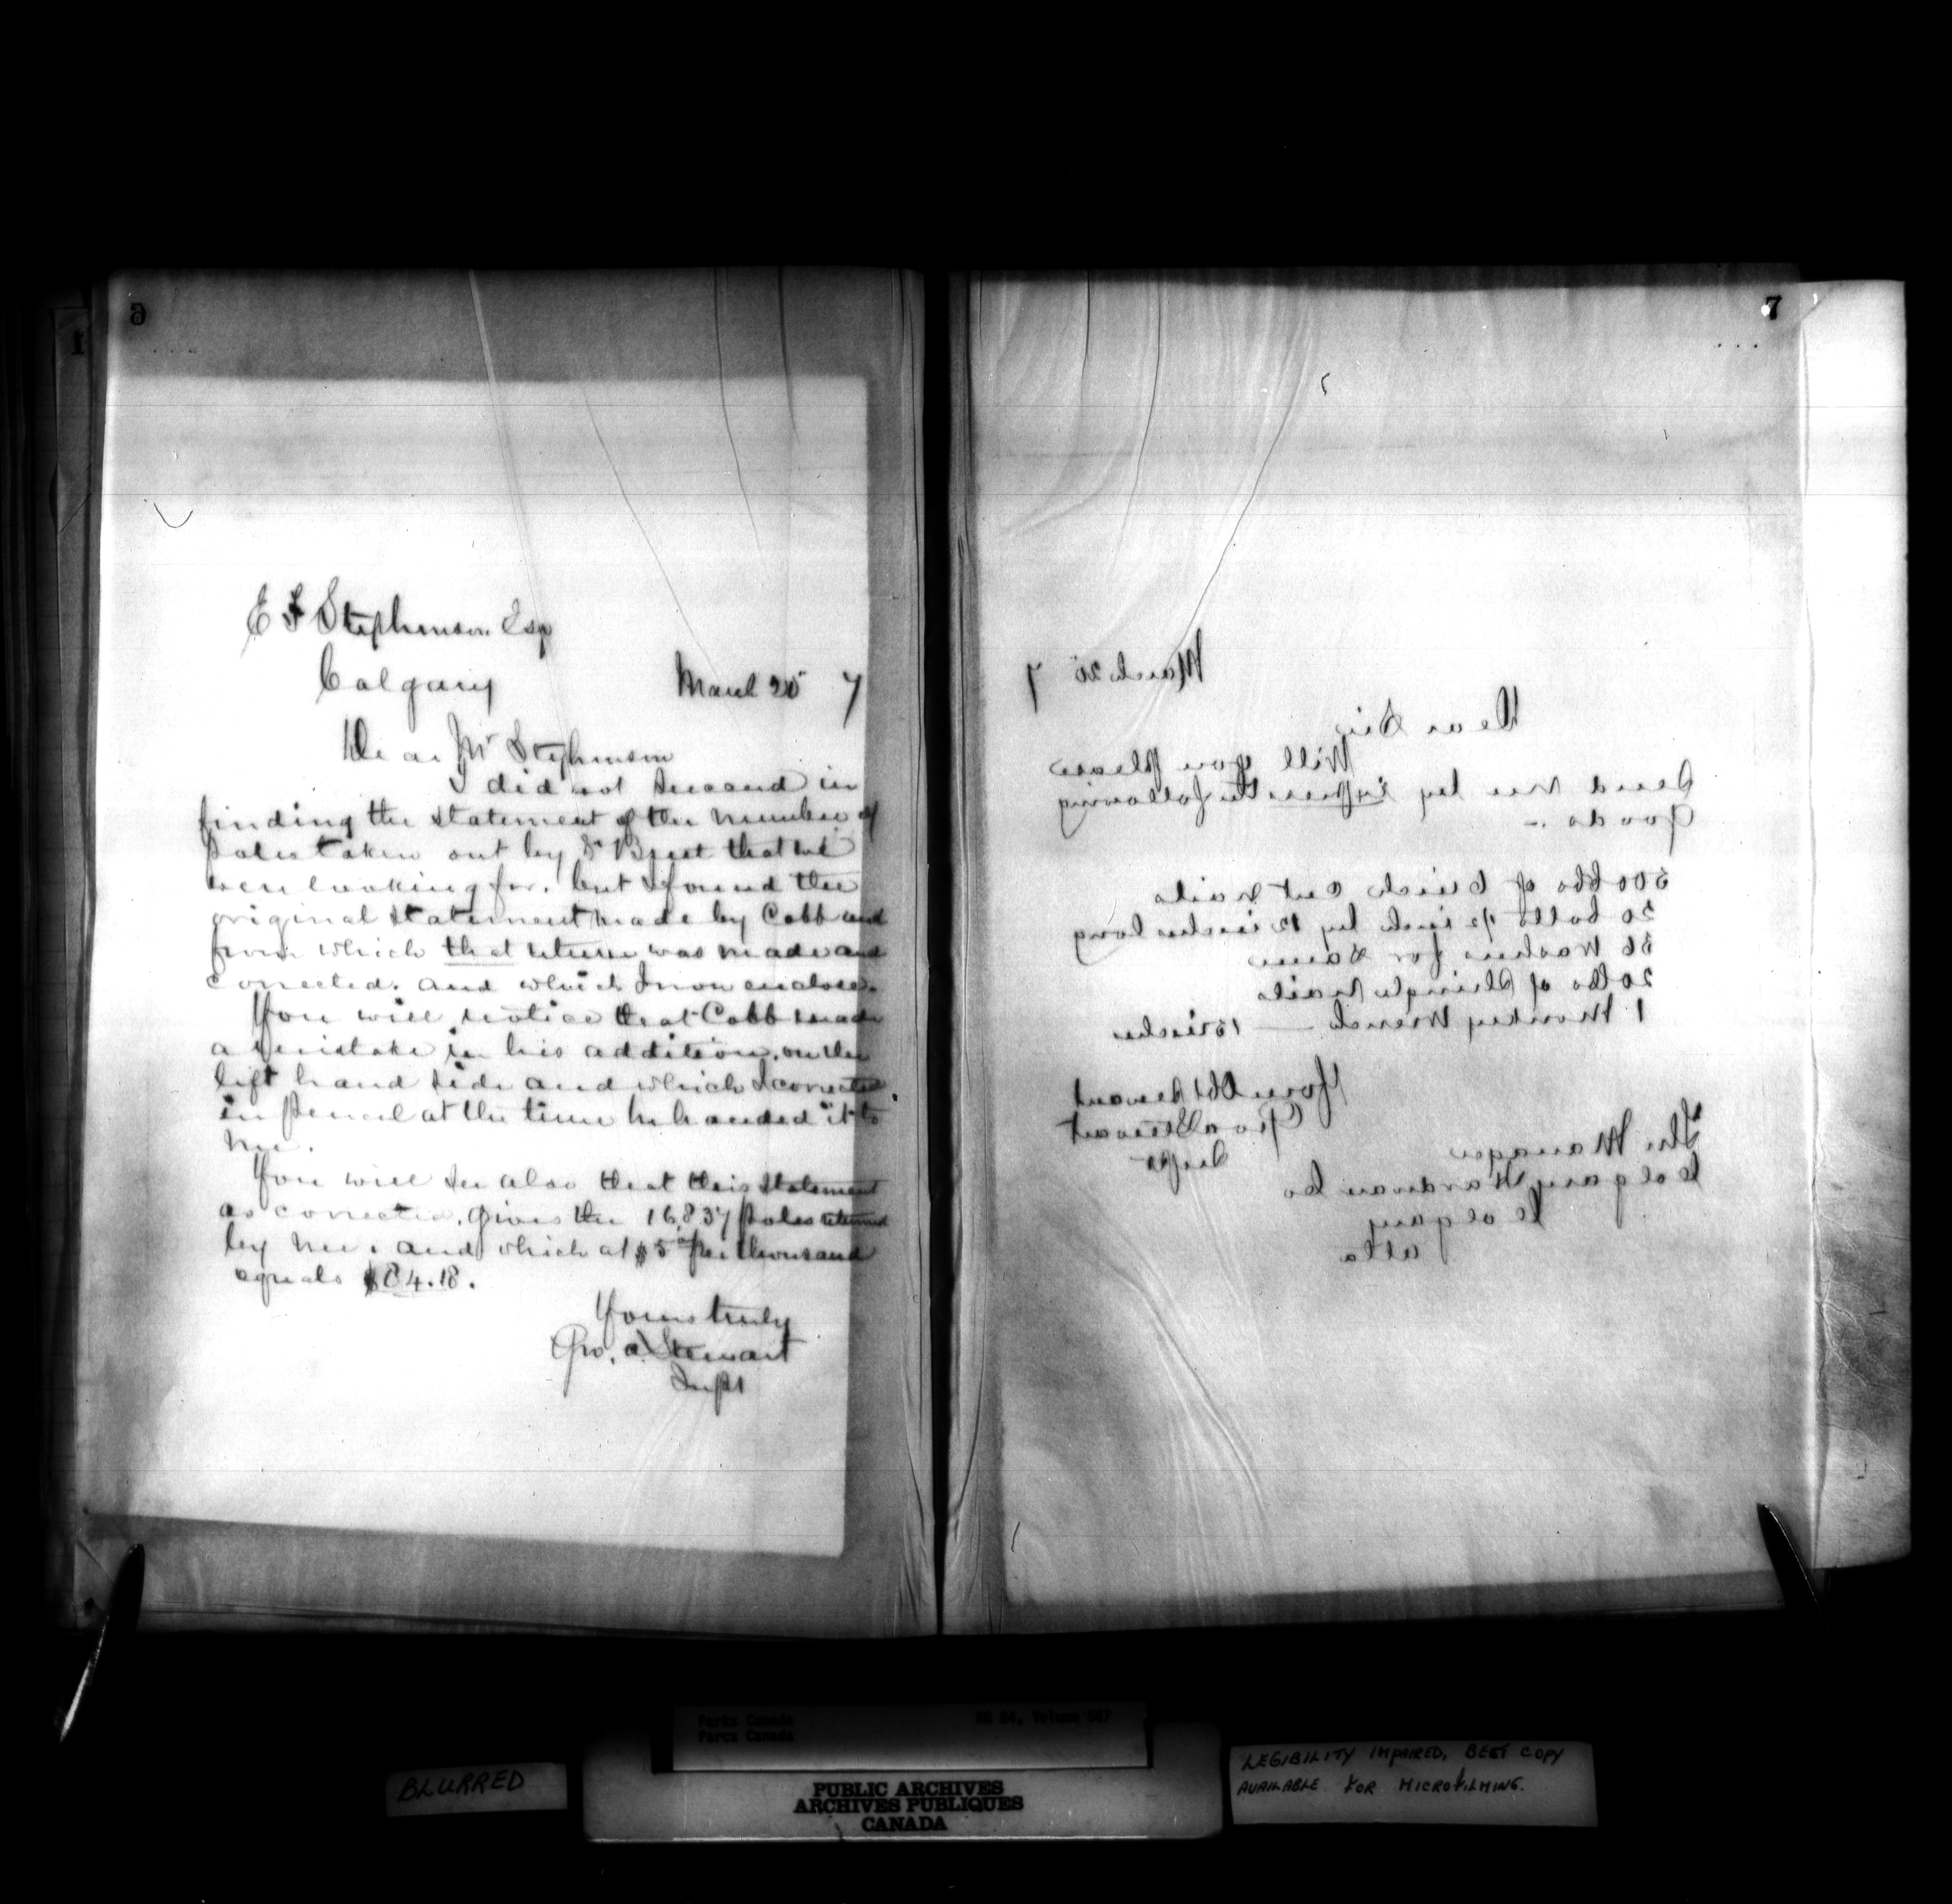 6
E F Stephenson Esq
Calgary March 25 7
Dear Mr Stephenson
I did not succeed in
finding the statement of the number of
poles taken out by Dr Brett that we
were looking for, but I found the
original statement made by Cobb and
from which that return was made and
corrected, and which I now enclose.
You will notice that Cobb made
a mistake in his addition, on the
left hand side and which I corrected
in pencil at the time he handed it to
me.
You will see also that this statement
as corrected, gives the 16,837 poles returned
by me, and which at $5 00 per thousand
equals $84.18.
Yours truly
Geo. A Stewart
Supt
7
March 25 7
Dear Sir
Will you please
send me by Express the following
Goods :-
300 lbs of 6 inch cut nails
20 bolts 1/2 inch by 12 inches long
36 Washers for same
20 lbs of Shingle Nails
1 Monkey Wrench — 15 inches
Your Obt Servant
Geo A Stewart
Supt
The Manager
Calgary Hardware Co
Calgary
Alta
Parks Canada
Parcs Canada
RG 84, Volume
BLURRED
PUBLIC ARCHIVES
ARCHIVES PUBLIQUES
CANADA
LEGIBILITY IMPAIRED, BEST COPY
AVAILABLE FOR MICROFILMING.